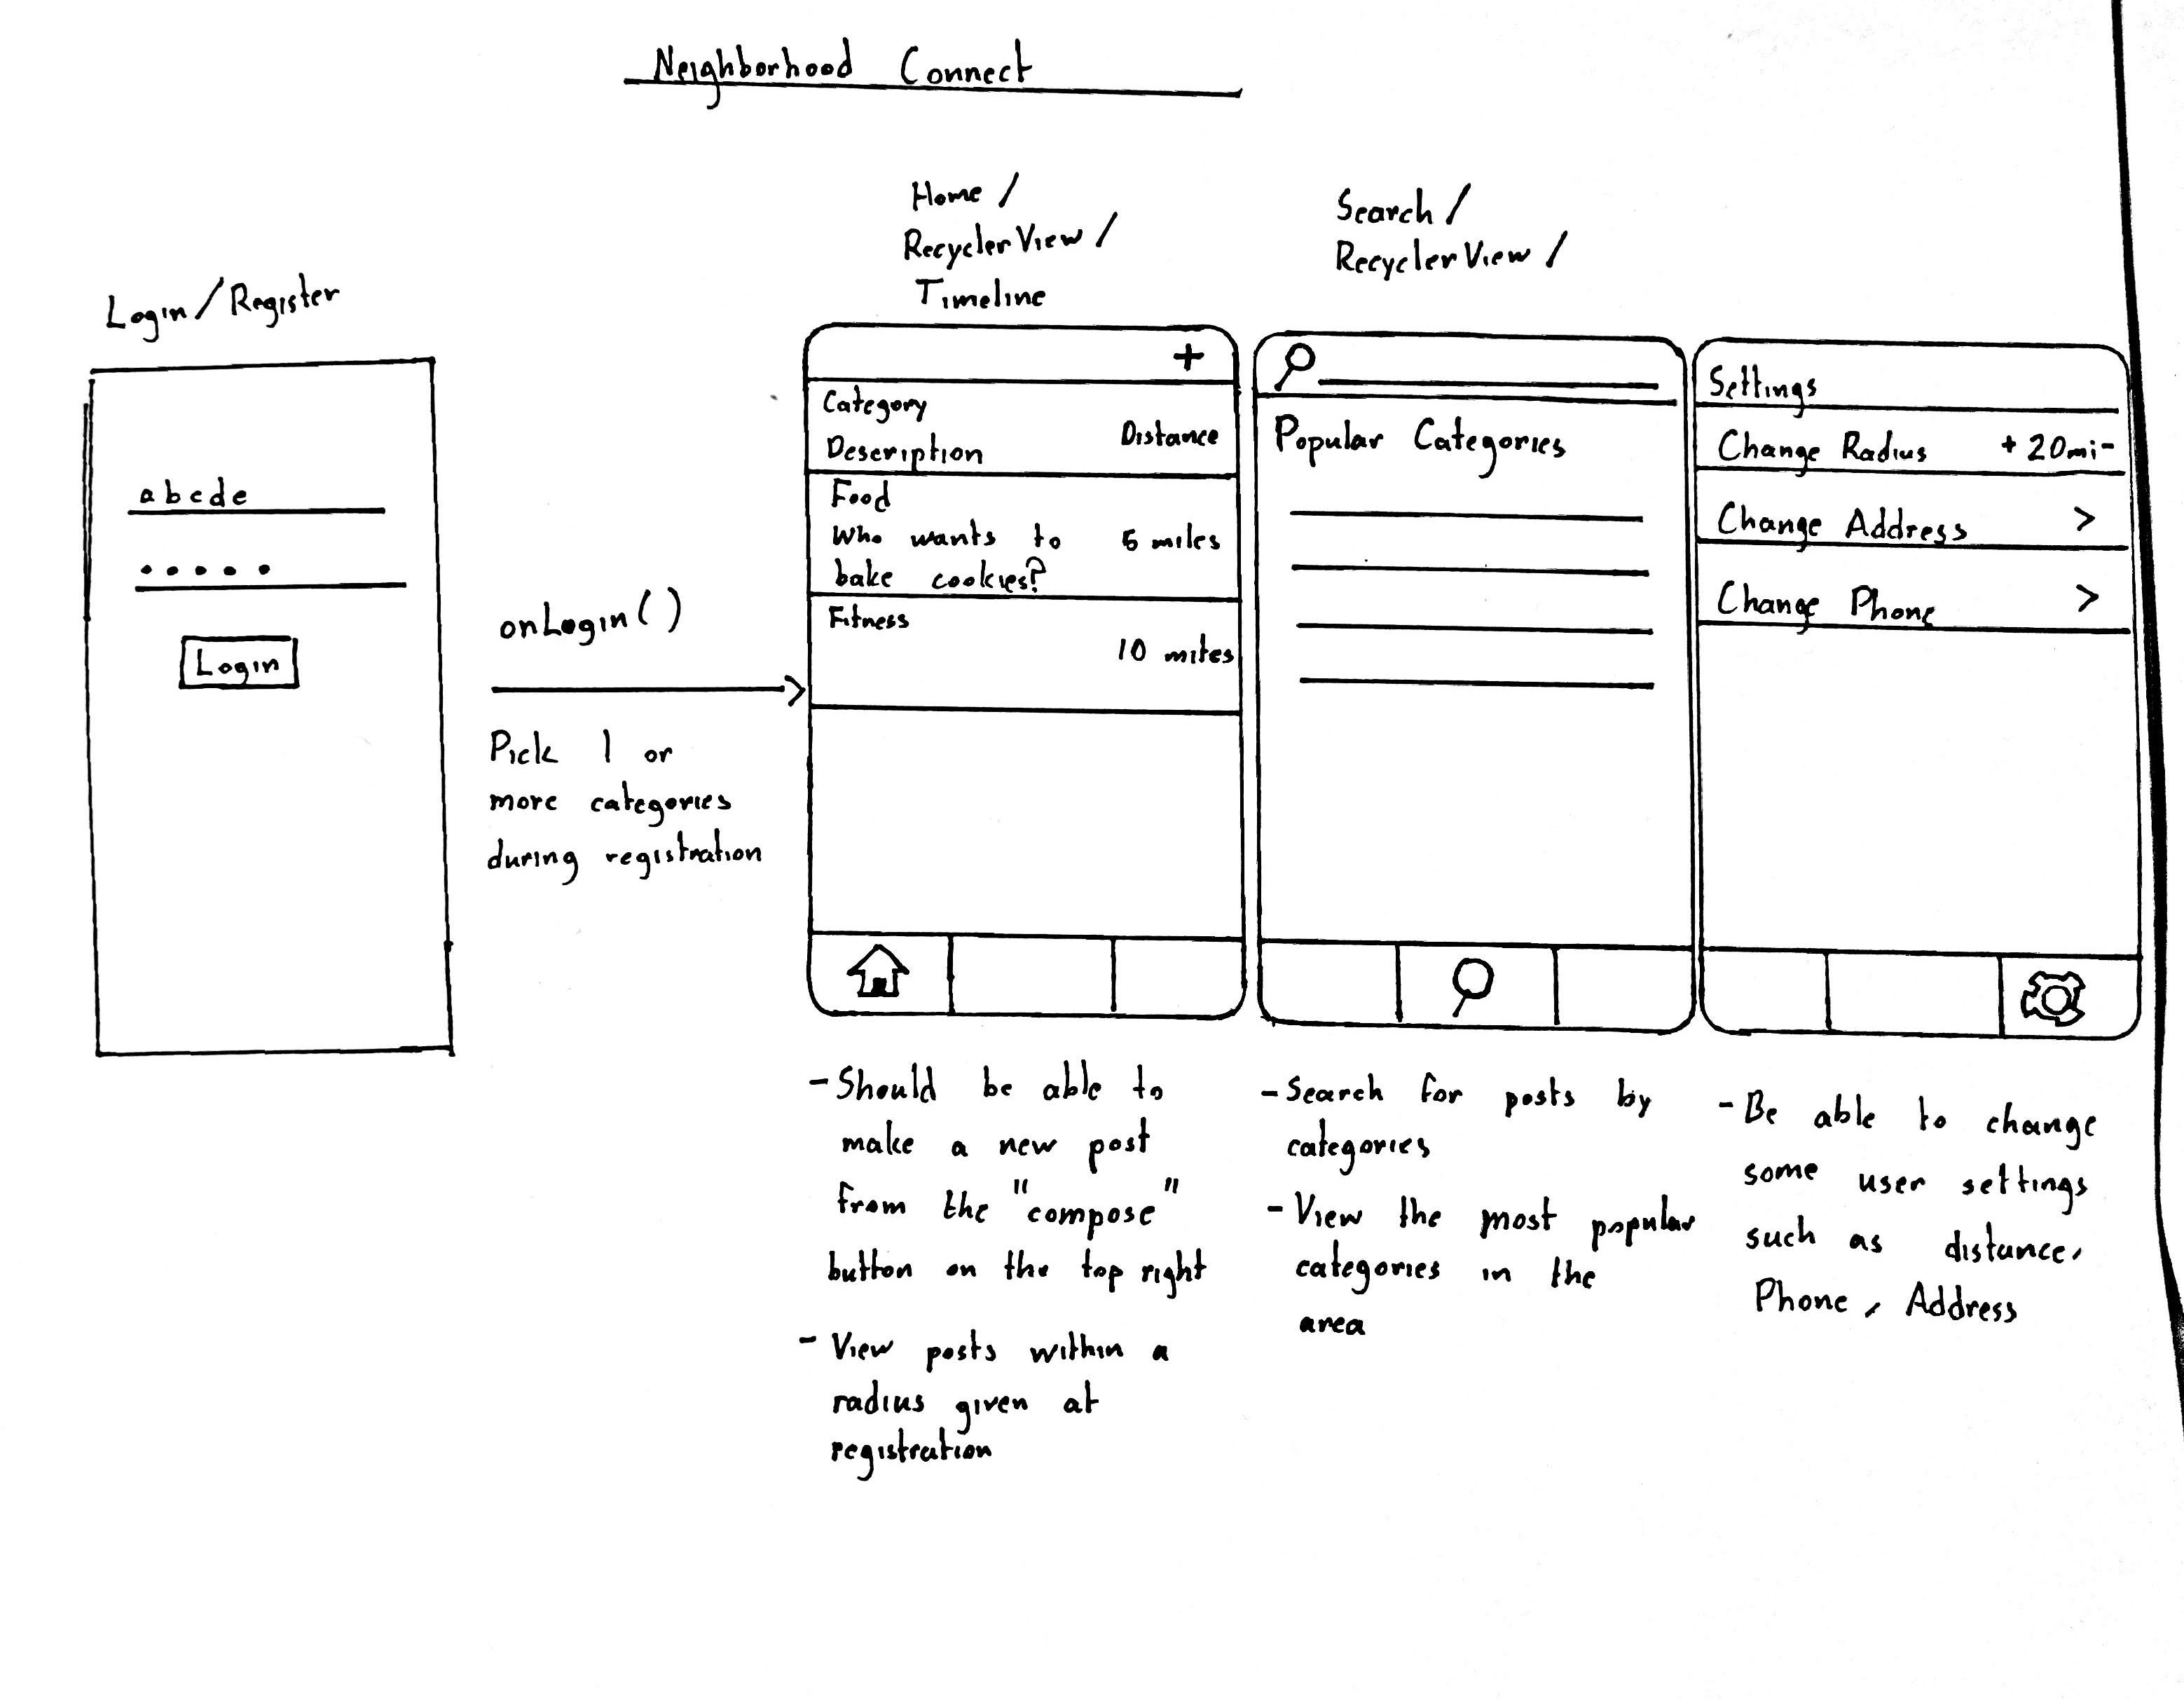 Neighborhood Connect
Login/Register
abcde
Login
onLogin()
Pick 1 or
more categories
during registration
Home /
RecyclerView /
Timeline
+
Category
Description
Distance
Food
Who wants to
bake cookies?
5 miles
Fitness
10 miles
- Should be able to
make a new post
from the "compose"
button on the top right
- View posts within a
radius given at
registration
Search /
RecyclerView /
Popular Categories
- Search for posts by
categories
- View the most popular
categories in the
area
Settings
Change Radius + 20mi-
Change Address >
Change Phone >
- Be able to change
some user settings
such as distance,
Phone, Address